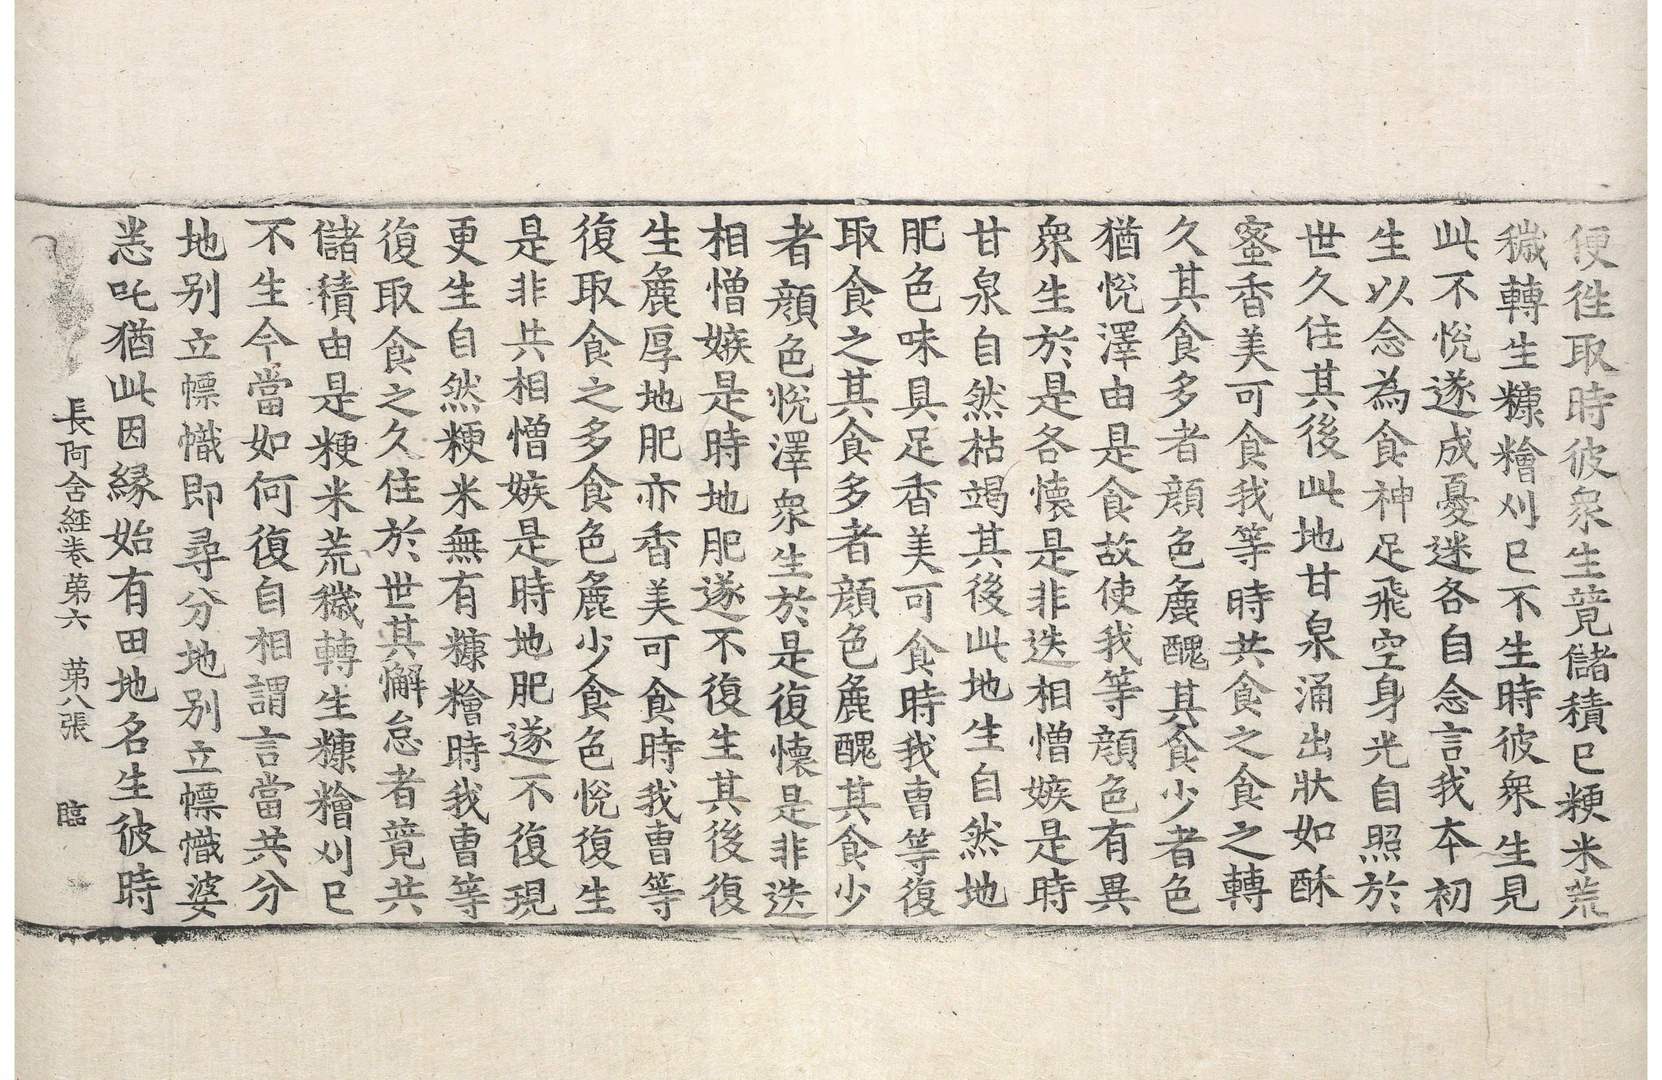 便徃取時彼衆生竟儲積已粳米荒
穢轉生糠糩刈已不生時彼衆生見
此不悅遂成憂迷各自念言我夲初
生以念為食神足飛空身光自照於
世久住其後此地甘泉涌出狀如酥
蜜香美可食我等時共食之食之轉
久其食多者顔色麁醜其食少者色
猶悅澤由是食故使我等顔色有異
衆生於是各懷是非迭相憎嫉是時
甘泉自然枯竭其後此地生自然地
肥色味具足香美可食時我曹等復
取食之其食多者顔色麁醜其食少
者顔色悅澤衆生於是復懷是非迭
相憎嫉是時地肥遂不復生其後復
生麁厚地肥亦香美可食時我曹等
復取食之多食色麁少食色悅復生
是非共相憎嫉是時地肥遂不復現
更生自然粳米無有糠糩時我曹等
復取食之久住於世其懈怠者竟共
儲積由是粳米荒穢轉生糠糩刈已
不生今當如何復自相謂言當共分
地別立幖幟即尋分地別立幖幟婆
悉吒猶此因縁始有田地名生彼時
長阿含經卷第六　第八張　臨